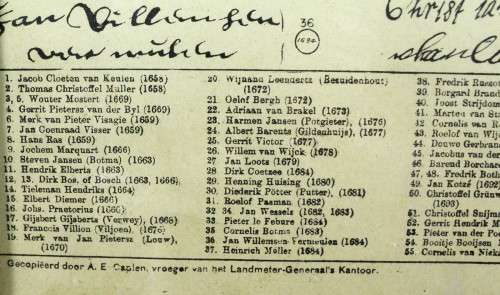 Jan Villemsen
vermuelen
36
(1684)
Christ
1. Jacob Cloeten van Keulen (1658)
2. Thomas Christoffel Muller (1658)
3, 5. Wouter Mostert (1669)
4. Gerrit Pietersz van der Byl (1669)
6. Merk van Pieter Visagie (1659)
7. Jan Coenraad Visser (1659)
8. Hans Ras (1659)
9. Jochem Marquart (1666)
10. Steven Jansen (Botma) (1663)
11. Hendrik Elberts (1663)
12, 13. Dirk Bos, of Bosch (1663, 1666)
14. Tieleman Hendriks (1664)
15. Elbert Diemer (1666)
16. Johs. Praetorius (1666)
17. Gijsbert Gijsberts (Verwey), (1668)
18. Francois Villion (Viljoen), (1676)
19. Merk van Jan Pietersz (Louw),
(1670)
20. Wijnand Leendertz (Bezuidenhout)
(1672)
21. Oelof Bergh (1672)
22. Adriaan van Brakel (1673)
23. Harmen Jansen (Potgieter), (1676)
24. Albert Barents (Gildenhuijs), (1677)
25. Gerrit Victor (1677)
26. Willem van Wijck (1678)
27. Jan Loots (1679)
28. Dirk Coetzee (1684)
29. Henning Huising (1680)
30. Diederik Pötter (Putter), (1681)
31. Roelof Pasman (1682)
32, 34. Jan Wessels (1682, 1683)
33. Pieter le Febure (1684)
35. Cornelis Botma (1683)
36. Jan Willemsen Vermeulen (1684)
37. Heinrich Möller (1684)
38. Fredrik
39. Borgard
40. Joost Strijdom
41. Marten van
42. Cornelis van
43. Roelof van
44. Douwe
45. Jacobus van
46. Barend
47, 48. Fredrik
49. Jan Kotzé (1692)
50. Christoffel
(1693)
51. Christoffel
52. Gerrit Hendrik
53. Pieter van der
54. Booitje Booijsen
55. Cornelis van
Gecopiëerd door A. E. Caplen, vroeger van het Landmeter-Generaal's Kantoor.